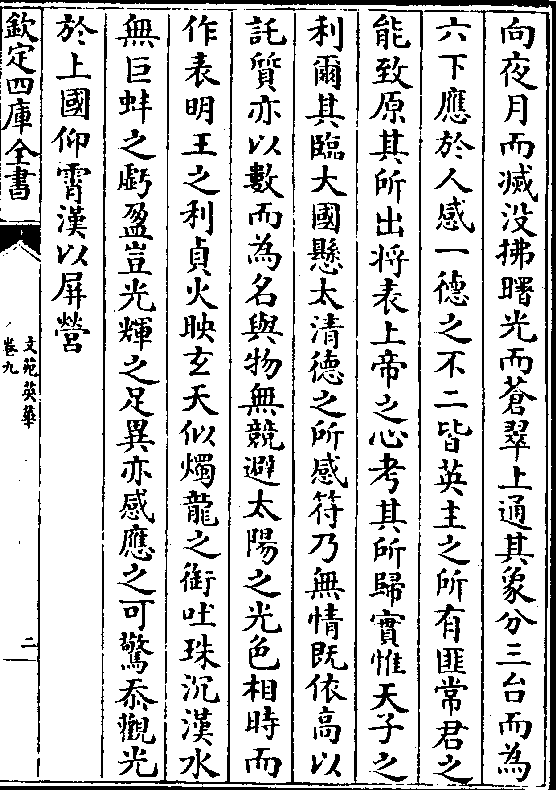 向夜月而㓕没拂曙光而蒼翠上通其象分三台而為
六下應於人感一德之不二皆英主之所有匪常君之
能致原其所出将表上帝之心考其所歸實惟天子之
利爾其臨大國懸太清德之所感符乃無情既依高以
託質亦以數而為名與物無競避太陽之光色相時而
作表明王之利貞火映玄天似燭龍之銜吐珠沉漢水
無巨蚌之虧盈豈光輝之足異亦感應之可驚忝觀光
於上國仰霄漢以屏營
欽定四庫全書
文苑英華
卷九
二